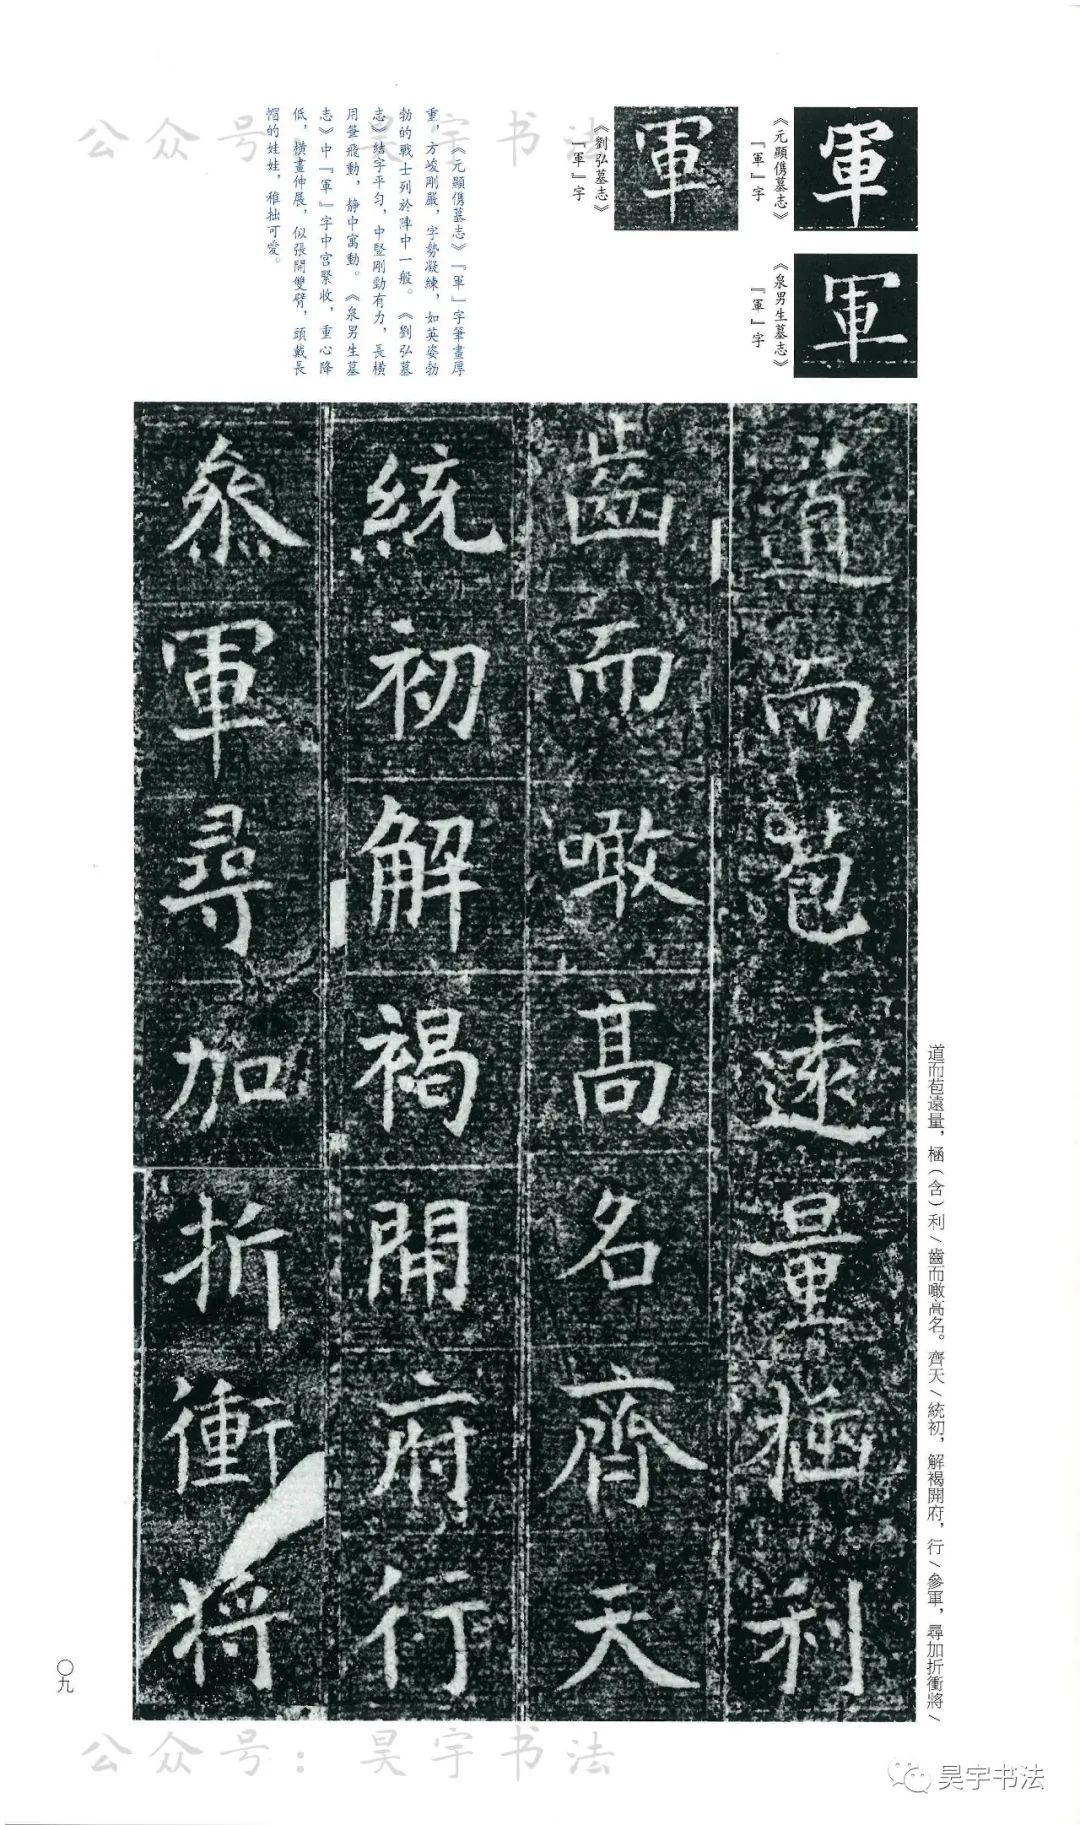 公众号：昊宇书法
軍
《元顯儁墓志》
『軍』字
軍
《泉男生墓志》
『軍』字
軍
《劉弘墓志》
『軍』字
《元顯儁墓志》『軍』字筆畫厚
重，方峻剛嚴，字勢凝練，如英姿勃
勃的戰士列於陣中一般。《劉弘墓
志》結字平匀，中竪剛勁有力，長横
用筆飛動，静中寓動。《泉男生墓
志》中『軍』字中宫緊收，重心降
低，横畫伸展，似張開雙臂，頭戴長
帽的娃娃，稚拙可愛。
道而苞遠量極利
齒而噉高名齊天
統初解褐開府行
參軍尋加折衝將
道而苞遠量，極（含）利／齒而噉高名。齊天／統初，解褐開府，行／參軍，尋加折衝將／
〇九
公众号：昊宇书法
昊宇书法